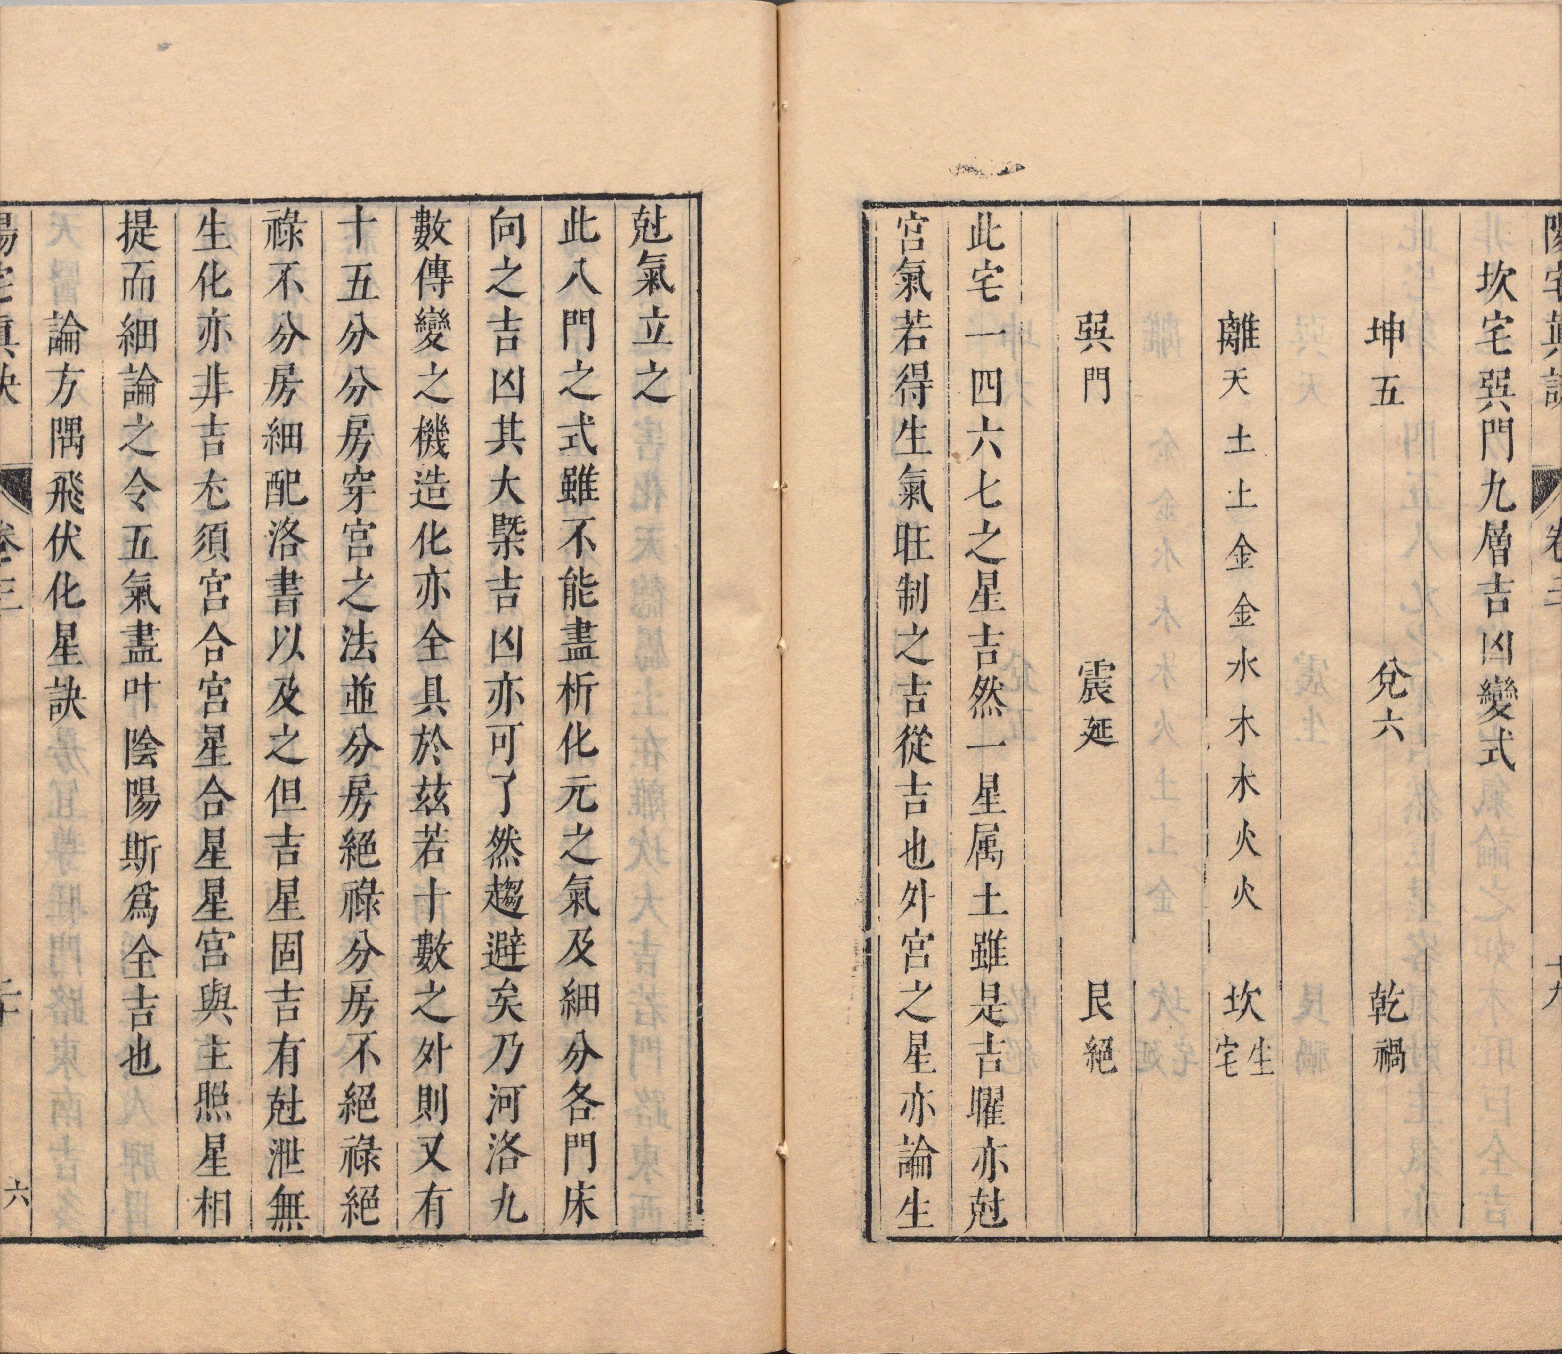 陽宅真訣 卷三 十九
坎宅巽門九層吉凶變式
坤五 兌六 乾禍
離天 土土金金水木木火火 坎生宅
巽門 震延 艮絕
此宅一四六七之星吉然一星属土雖是吉曜亦尅
宮氣若得生氣旺制之吉從吉也外宮之星亦論生
尅氣立之
此八門之式雖不能盡析化元之氣及細分各門床
向之吉凶其大槩吉凶亦可了然趨避矣乃河洛九
數傳變之機造化亦全具於茲若十數之外則又有
十五分分房穿宮之法並分房絕祿分房不絕祿絕
祿不分房細配洛書以及之但吉星固吉有尅泄無
生化亦非吉尤須宮合宮星合星星宮與主照星相
提而細論之令五氣盡叶陰陽斯爲全吉也
論方隅飛伏化星訣
陽宅真訣 卷三 二十 六